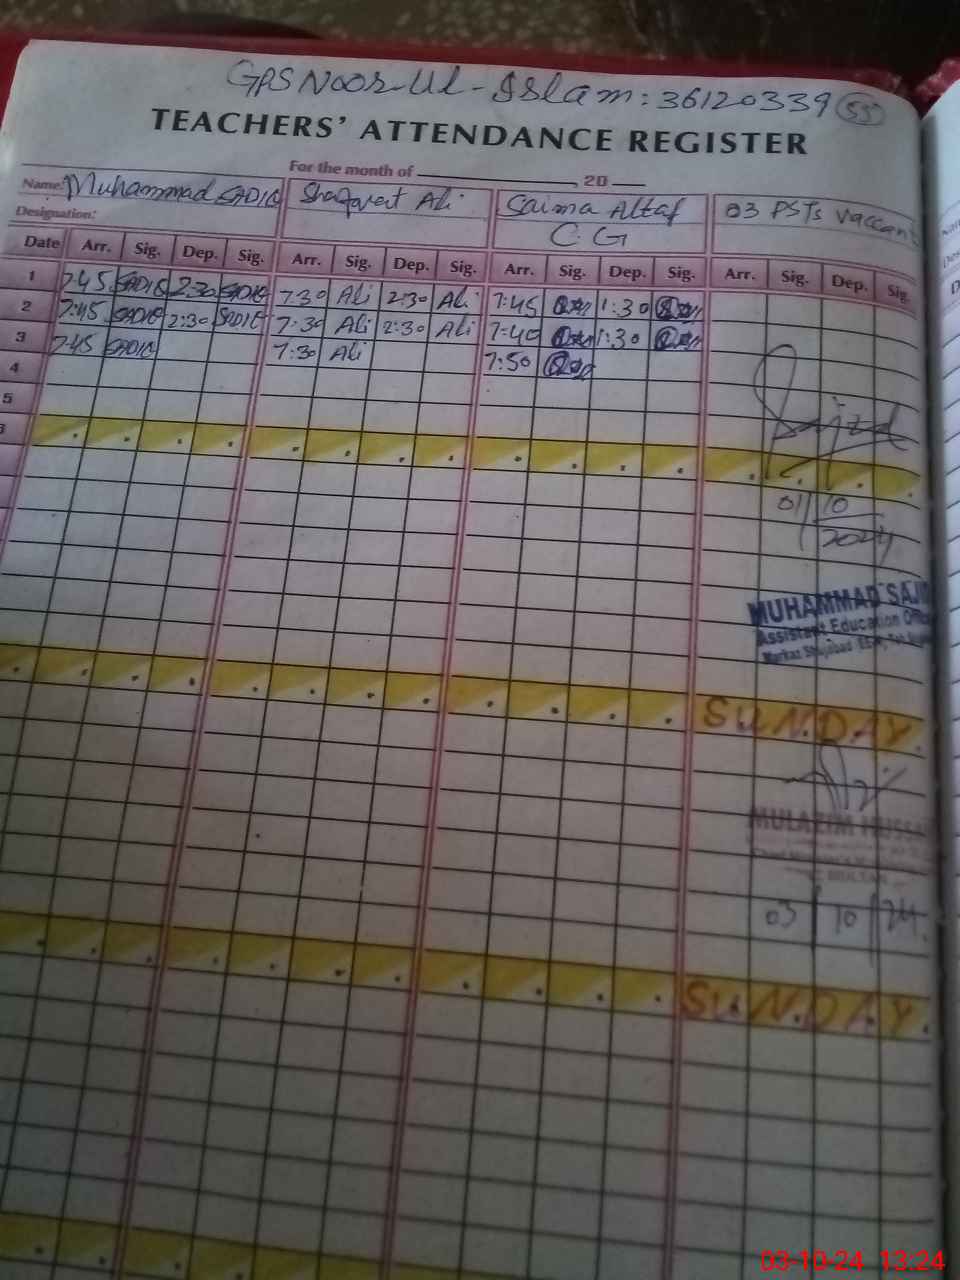 GPS Noor-Ul-Islam: 36120339 55
TEACHERS' ATTENDANCE REGISTER
For the month of 20
Name: Muhammad SADIQ Shafqat Ali Saima Altaf 03 PSTs Vaccant
Designation: C.G
Date Arr. Sig. Dep. Sig. Arr. Sig. Dep. Sig. Arr. Sig. Dep. Sig. Arr. Sig. Dep. Sig.
1 7:45 SADIQ 2:30 SADIQ 7:30 Ali 2:30 Ali 7:45 1:30
2 7:45 SADIQ 2:30 SADIQ 7:30 Ali 2:30 Ali 7:40 1:30
3 7:45 SADIQ 7:30 Ali 7:50
4
5
01 10 2024
MUHAMMAD SAJI
Assistant Education Offic
Markaz Shujabad
SUNDAY
MULAZIM HUSSA
03 10 24
SUNDAY
03-10-24 13:24